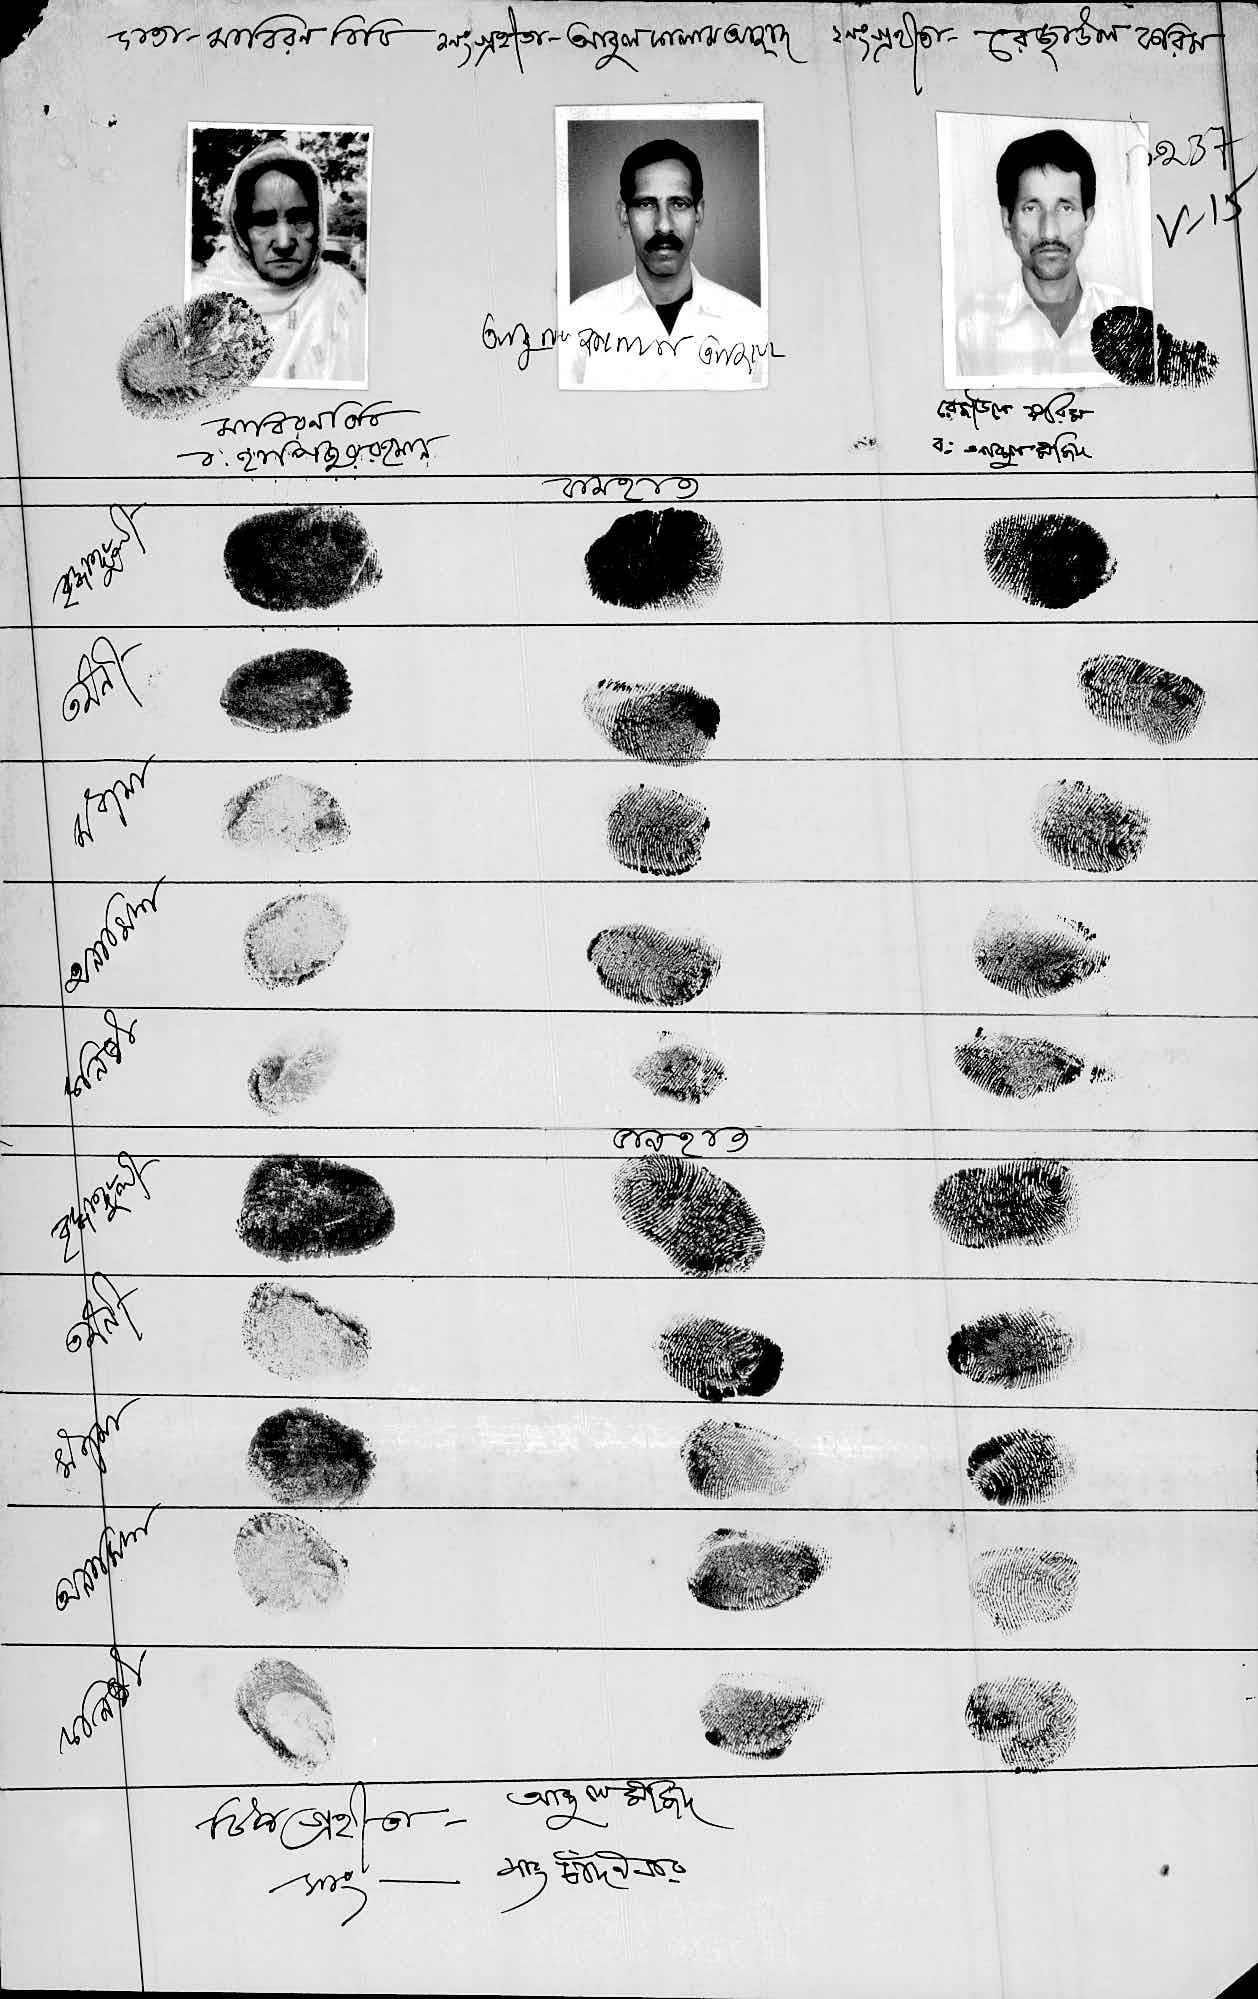 দাতা- সাবিরন বিবি ১নং গ্রহীতা- আবুল কালাম আজাদ ২নং গ্রহীতা- রেজাউল করিম
V-15
আবুল কালাম আজাদ
সাবিরন বিবি
ব:
রেজাউল করিম
ব: আব্দুল মজিদ
বামহাত
বৃদ্ধাঙ্গুলী
তর্জনী
মধ্যমা
অনামিকা
কনিষ্ঠা
ডানহাত
বৃদ্ধাঙ্গুলী
তর্জনী
মধ্যমা
অনামিকা
কনিষ্ঠা
টিপ গ্রহীতা - আব্দুল মজিদ
সাং — সাং